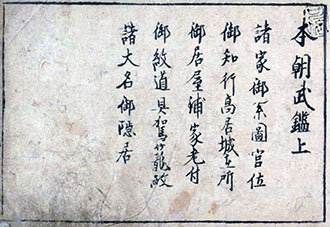 本朝武鑑上
諸家御系圖官位
御知行高居城在所
御居屋鋪家老付
御紋道具駕籠
諸大名御隠居